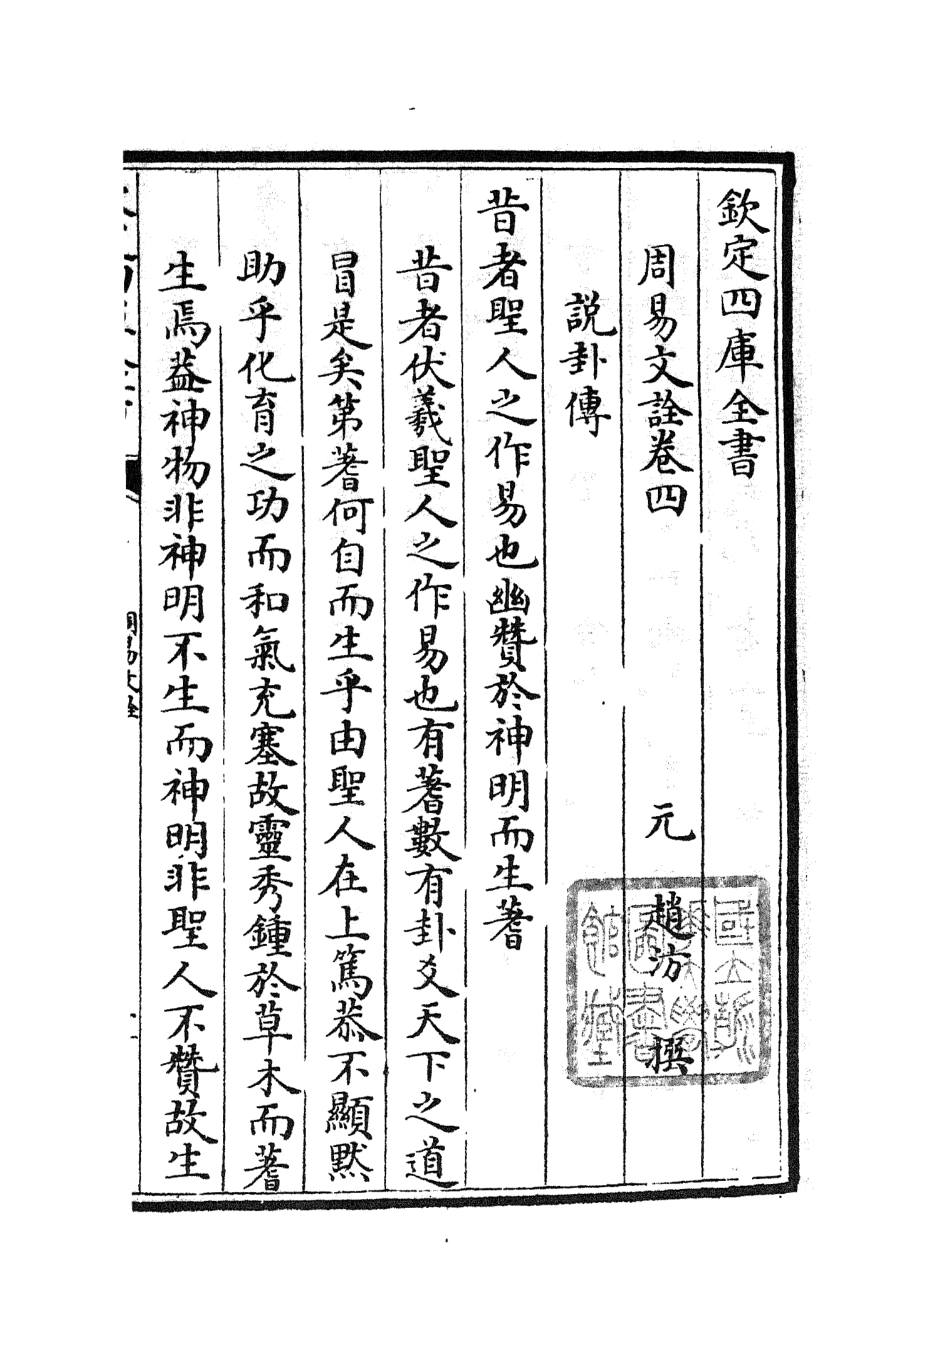 欽定四庫全書
周易文詮卷四
元 趙汸 撰
説卦傳
昔者聖人之作易也幽贊於神明而生蓍
昔者伏羲聖人之作易也有蓍數有卦爻天下之道
冒是矣第蓍何自而生乎由聖人在上篤恭不顯默
助乎化育之功而和氣充塞故靈秀鍾於草木而蓍
生焉葢神物非神明不生而神明非聖人不贊故生
周易文詮